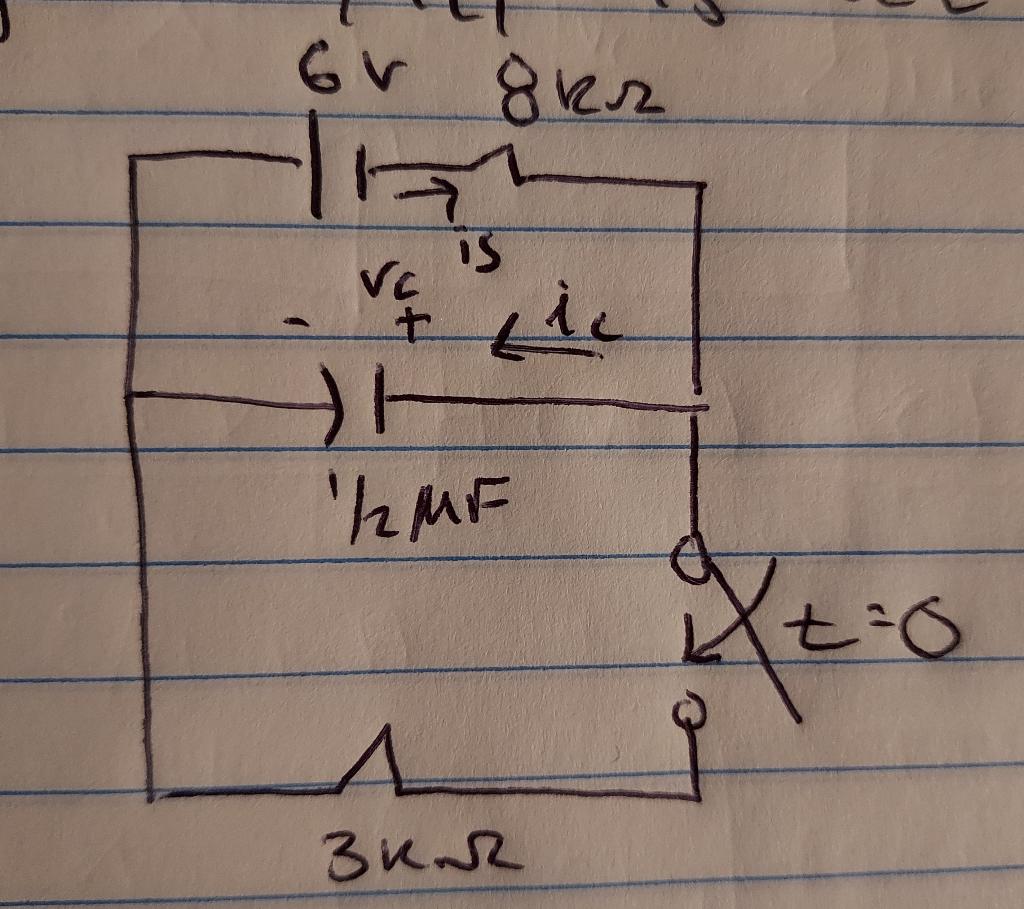 6V 8kΩ
is
vc
- +
ic
1/2 MF
t=0
3kΩ